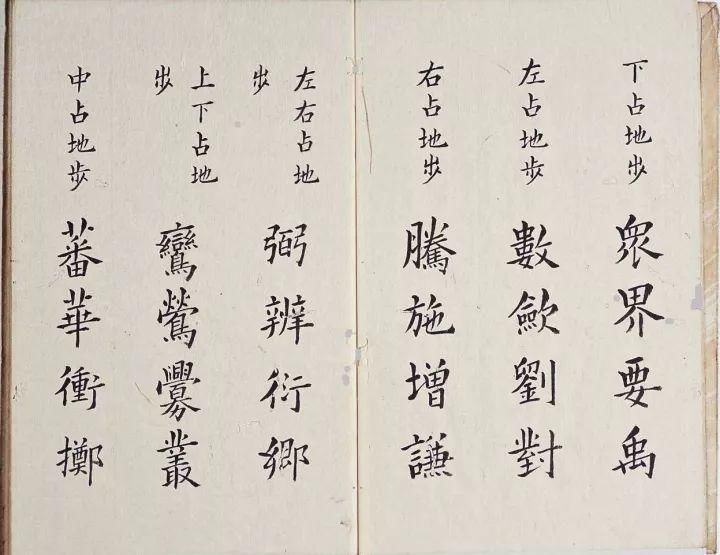 下占地步
眾界要禹
左占地步
數歛劉對
右占地步
騰施增謙
左右占地
步
弼辨衍鄉
上下占地
步
鸞鶯釁叢
中占地步
蕃華衝擲